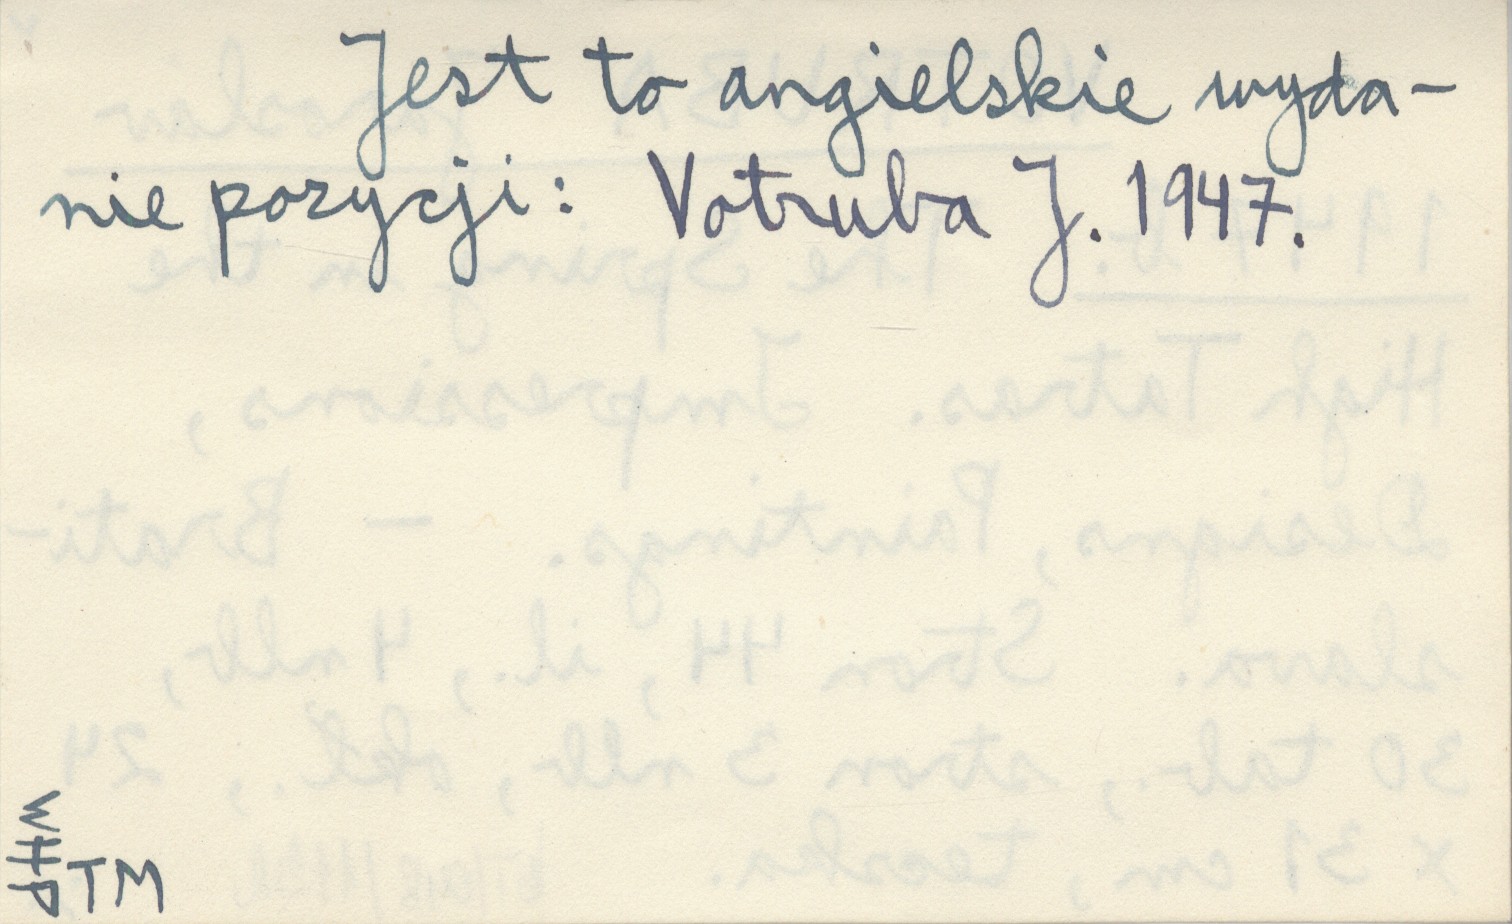 Jest to angielskie wyda-
nie pozycji: Votruba J. 1947.
WHP
TM